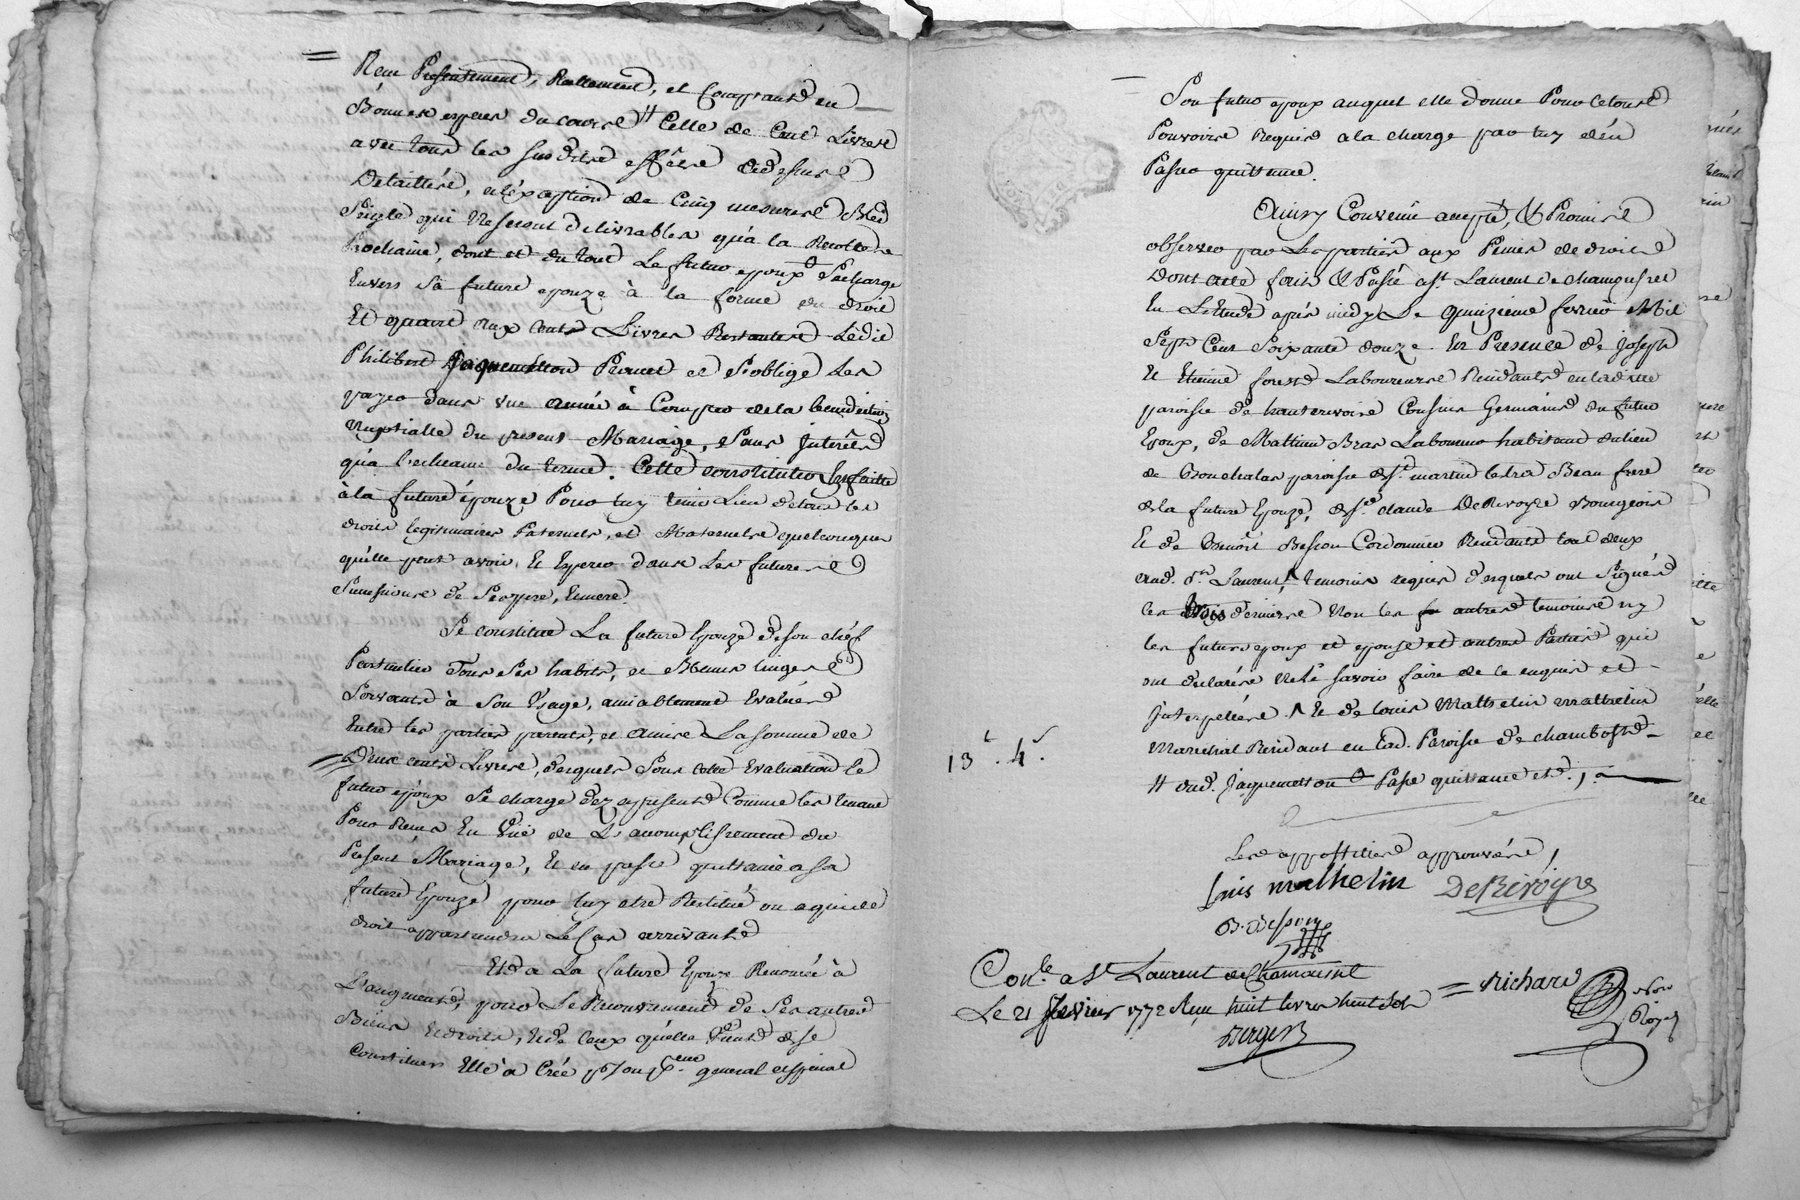 Reçu Presentement, Reellement, et Comptant en
Bonnes especes du cours # Celle de Cent Livres
avec tous les susdits effets cydessus
Detaillés, a l'exception de Cinq mesures Bled
Seigle qui Ne seront delivrables qu'a la Recolte
Prochaine, dont et du tout Le futur epoux Se charge
Envers Sa future epouze à la forme du droit
Et quant aux cents Livres Restantes Ledit
Philibert Jaquemetton Promet et S'oblige Les
payer dans une année à Compter de la benediction
Nuptialle du present Mariage, Sans Interêts
qu'a l'echeance du terme. Cette constitution faitte
à la future épouze Pour luy tenir Lieu de tous les
droits legitimaires Paternels, et Maternels quelconques
qu'elle peut avoir Et Esperer dans Les futures
Successions de Ses pere, et mere
Se constitue La future Epouze de Son chef
Particulier Tous Ses habits, et Menus linges
Servants à Son Usage, amiablement Evalués
Entre les parties parents, et amis La Somme de
Deux cents Livres, desquels Sous cette Evaluation le
futur epoux Se charge dez a present Comme les tenant
Pour Reçus En Vüe de L'accomplissement du
Present Mariage, Et en passe quittance a Sa
future Epouze pour luy etre Restitué ou a qui de
droit appartiendra Le Cas arrivant
Et a La future Epouze Renoncée à
L'augment, pour Le Recouvrement de Ses autres
Biens et droits, Et de Ceux qu'elle Vient de se
Constituer Elle à Créé p^r Son p^reur general et special
Son futur epoux auquel elle donne Pour Ce tous
Pouvoirs Requis a la charge par luy d'en
Passer quittance.
Ainsy Convenu accepté, & Promis
observer par Les parties aux Peines de droit
Dont acte fait & Passé a S^t Laurent de chamousset
En L'etude après midy Le quinzieme fevrier Mil
Sept Cent Soixante douze En Presence de Joseph
Et Etienne forest Laboureurs Residants en laditte
paroisse de hauterivoire Cousins Germains du futur
Epoux, de Mathieu Bras Laboureur habitant du lieu
de Bouchalas paroisse de S^t martin lestra Beau frere
de la future Epouze, de S^r claude DeRivoyre Bourgeois
Et de Benoît Besson Cordonnier Residants tous deux
aud. S^t Laurent, ^ temoins requis desquels ont Signés
les trois derniers Non les autres temoins ny
les futurs epoux et epouse et autres Parties qui
ont declarés Ne le Savoir faire de ce enquis et
Interpellés. ^ Et de louis Mathelin mathelin
Marechal Residant en lad. Paroisse de chambost
# aud. Jaquemetton Passe quittance et.
13^L. 4^s.
Les appostilles approuvées,
louis mathelin DeRivoyre
B. Besson
Con^lé a S^t Laurent de Chamousset
Le 21 fevrier 1772 Reçu huit livres huit sols
Berger
Richard
Nor^e
Royal